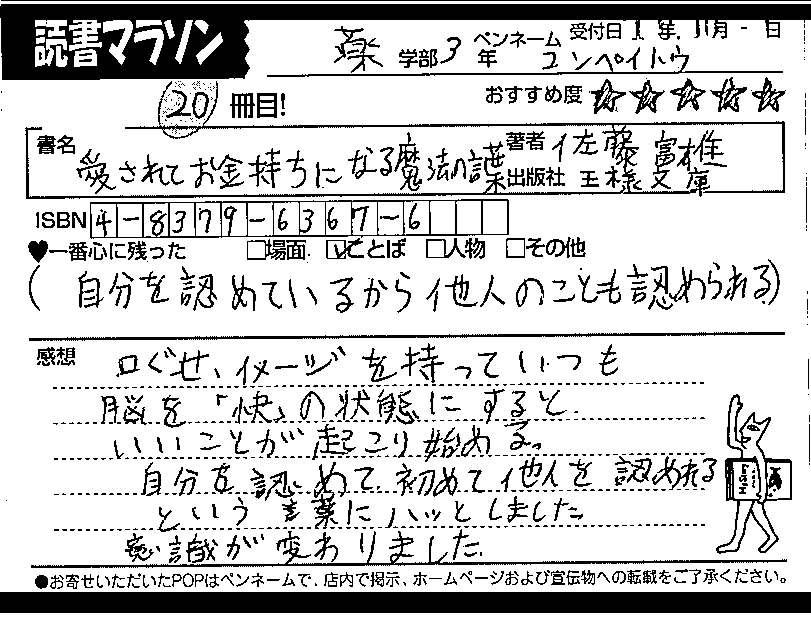 読書マラソン
薬 学部 3 年 ペンネーム コンペイトウ 受付日 1 年 11月 - 日
20 冊目! おすすめ度 ☆☆☆☆☆
書名 愛されてお金持ちになる魔法の言葉
著者 佐藤富雄
出版社 王様文庫
ISBN 4-8379-6367-6
♥一番心に残った □場面 ☑ことば □人物 □その他
(自分を認めているから他人のことも認められる)
感想 口ぐせ、イメージを持っていつも
脳を「快」の状態にすると
いいことが起こり始める。
自分を認めて初めて他人を認めれる
という言葉にハッとしました
意識が変わりました。
●お寄せいただいたPOPはペンネームで、店内で掲示、ホームページおよび宣伝物への転載をご了承ください。